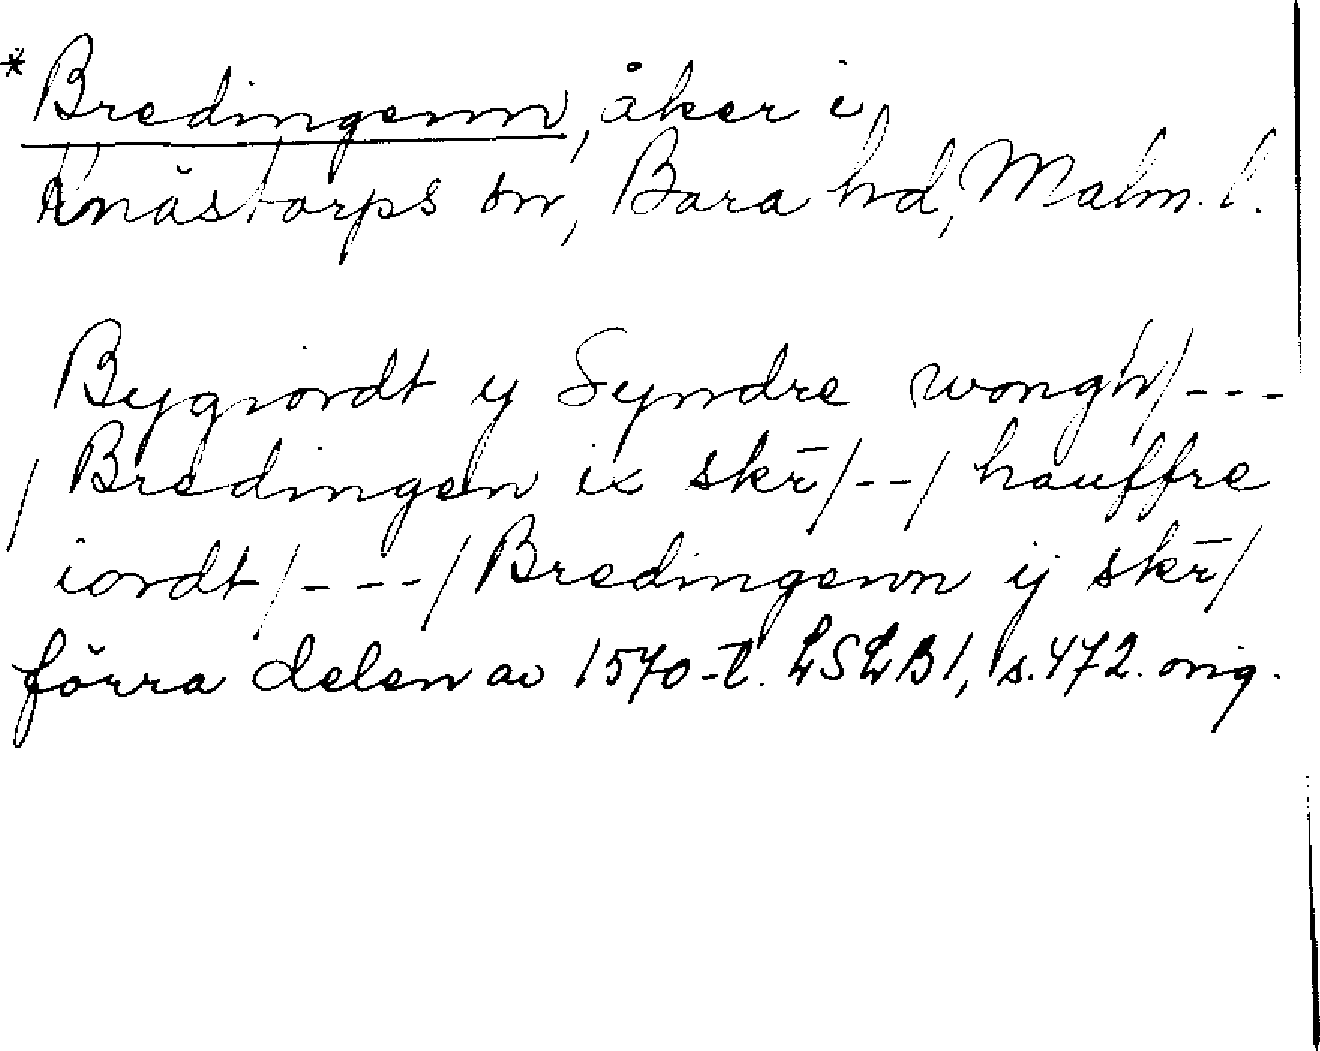 * Bredingenn, åker i
Knästorps sn, Bara hd, Malm. l.
Bygiordt y Syndre wongh/---
/Bredingen ix skr̄/--/hauffre
iordt/---/Bredingenn ij skr̄/
förra delen av 1570-t. LSLB1, s.472. orig.